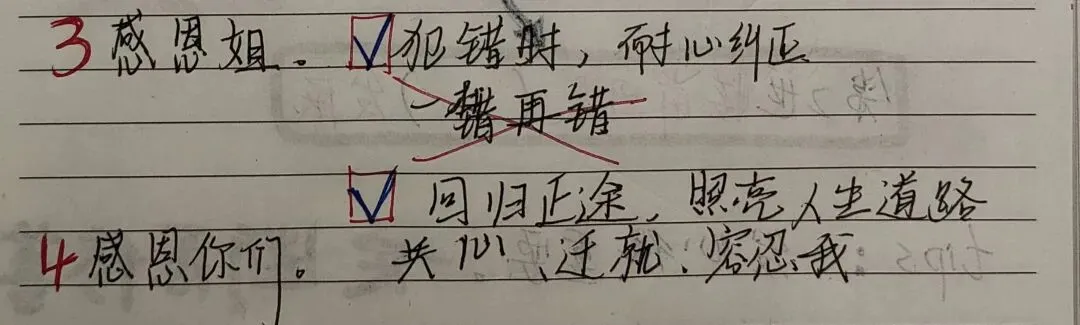 3 感恩姐。 ☑犯错时，耐心纠正
一错再错
☑ 回归正途，照亮人生道路
4 感恩你们。 关心、迁就、容忍我